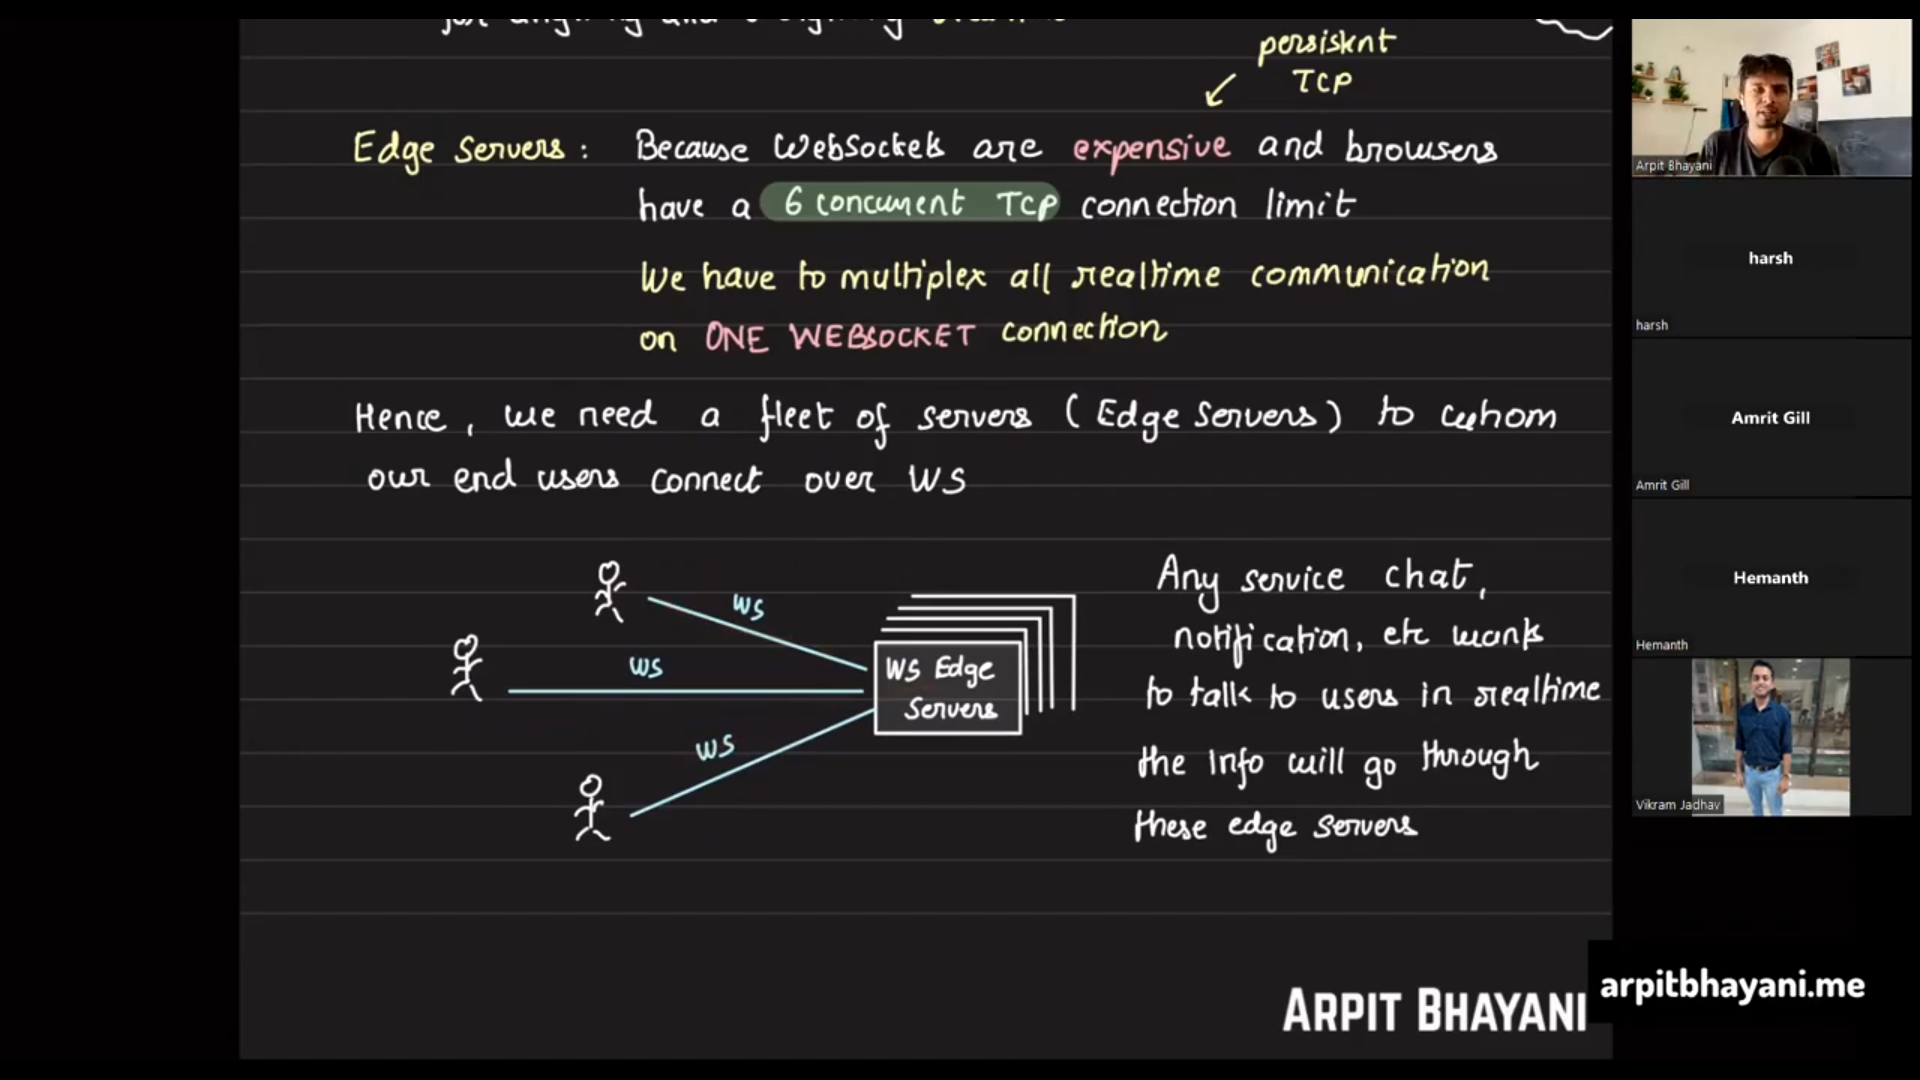 persistent
TCP
Edge Servers : Because WebSockets are expensive and browsers
have a 6 concurrent TCP connection limit
We have to multiplex all realtime communication
on ONE WEBSOCKET connection
Hence, we need a fleet of servers (Edge Servers) to whom
our end users connect over WS
WS
WS
WS
WS Edge
Servers
Any service chat,
notification, etc wants
to talk to users in realtime
the info will go through
these edge servers
ARPIT BHAYANI
arpitbhayani.me
Arpit Bhayani
harsh
harsh
Amrit Gill
Amrit Gill
Hemanth
Hemanth
Vikram Jadhav